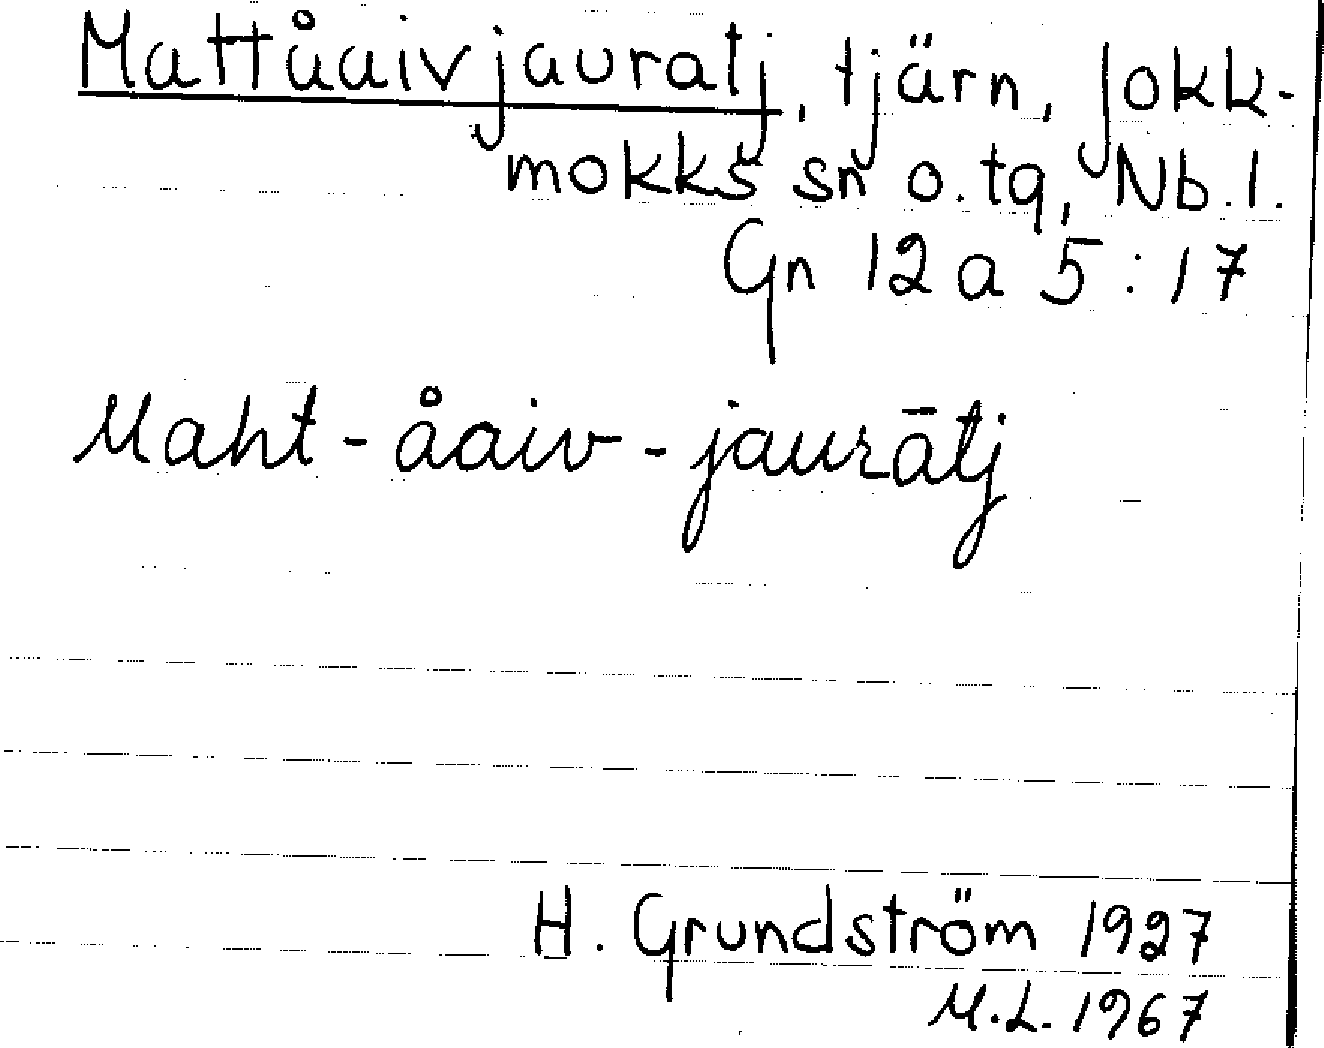 Mattåaivjauratj, tjärn, Jokk-
mokks sn o. tg, Nb. l.
Gn 12 a 5:17
Maht-åaiv-jaurātj
H. Grundström 1927
M.L. 1967